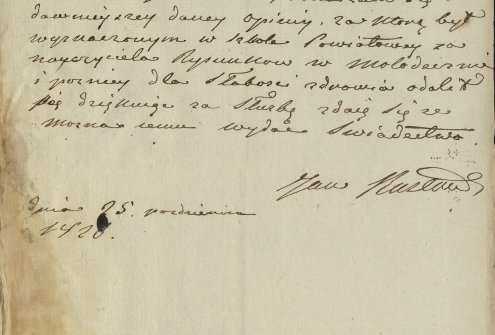 dawnieyszey daney opinij, za którą był
wyznaczonym w szkole Powiatowey za
nauczyciela Rysunków w Mołodecznie
i pozniey dla Słabości zdrowia odalił
się dziękuiąc za Służbę zdaie się ze
mozna iemu wydać Swiadectwo.
Jan Rustem
dnia 25. pazdziernia
1820.